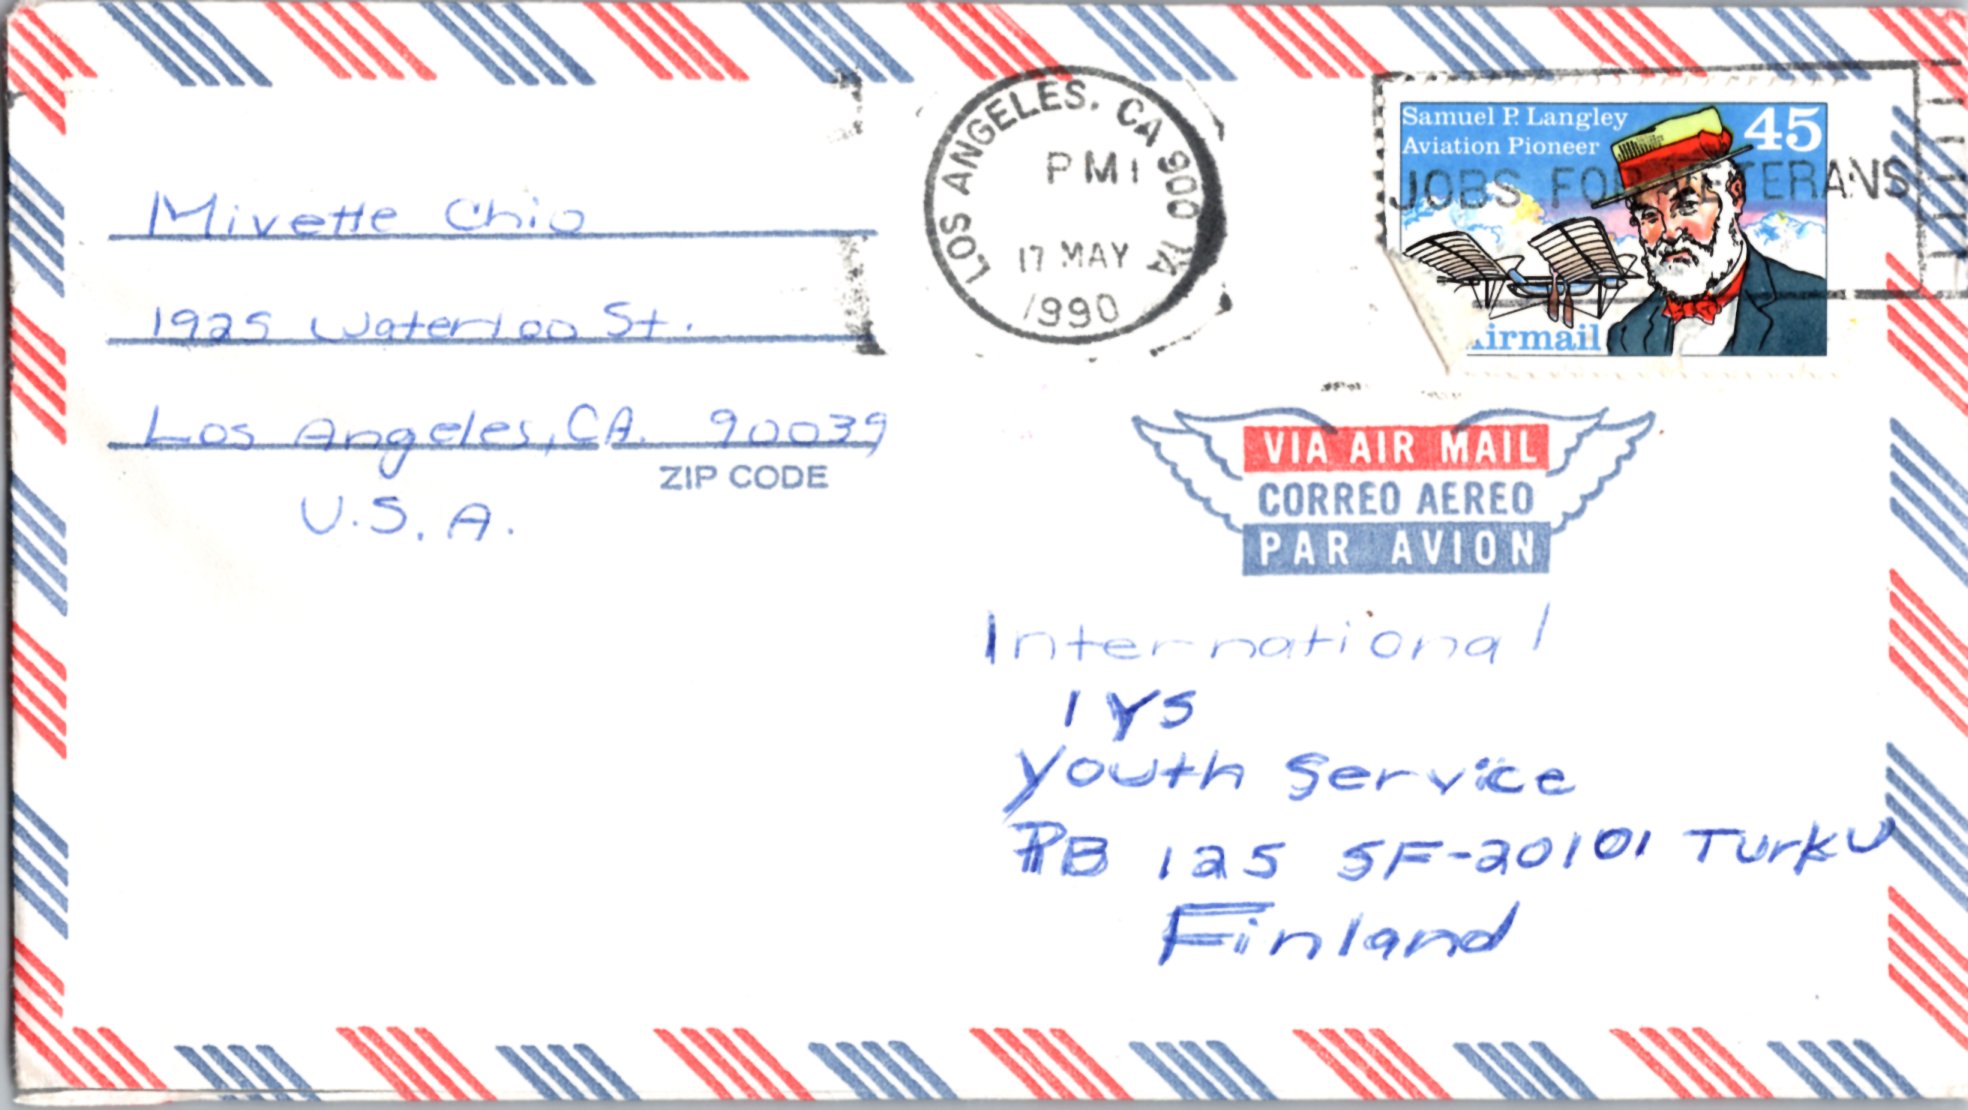 Mivette Chio
1925 Waterloo St.
Los Angeles, CA. 90039
ZIP CODE
U.S.A.
LOS ANGELES, CA 900
PM
17 MAY
1990
Samuel P. Langley
Aviation Pioneer
45
JOBS FOR VETERANS
irmail
VIA AIR MAIL
CORREO AEREO
PAR AVION
International
IYS
Youth Service
PB 125 SF-20101 Turku
Finland